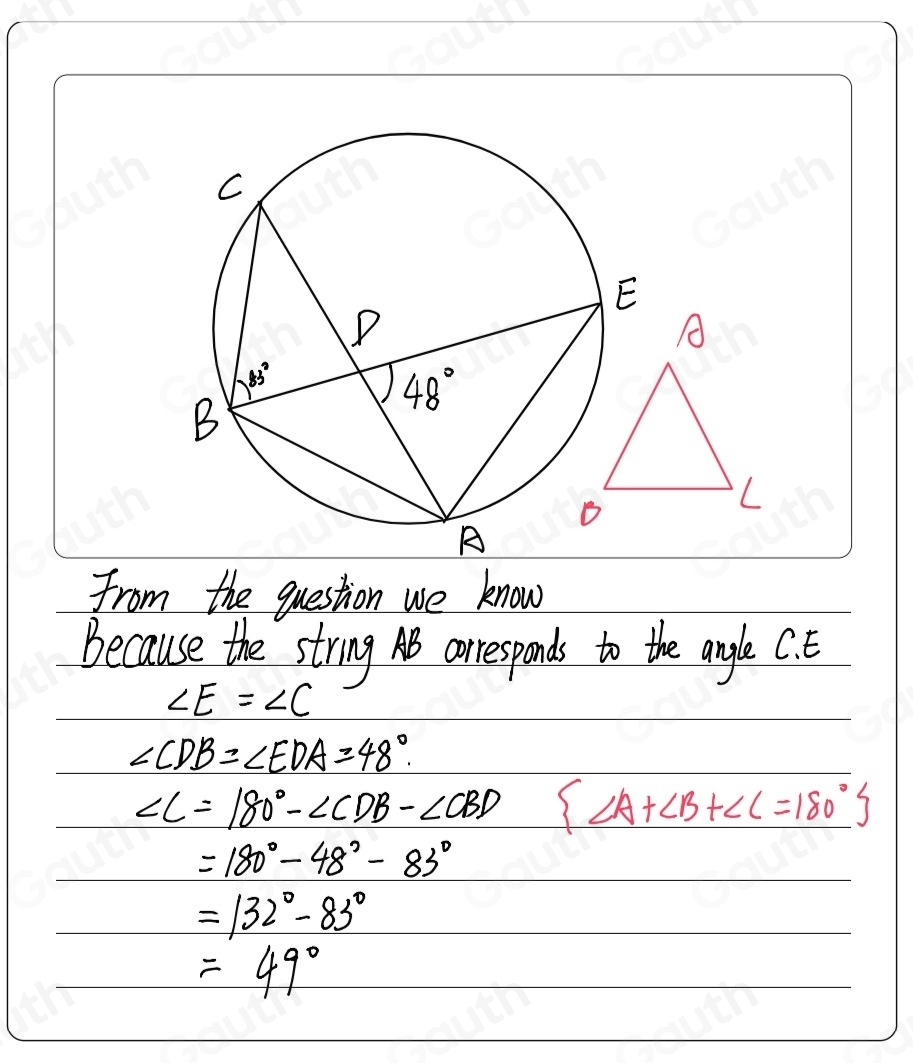 C
E
D
A
83°
48°
B
B
C
A
From the question we know
Because the string AB corresponds to the angle C.E
∠E = ∠C
∠CDB = ∠EDA = 48°.
∠C = 180° - ∠CDB - ∠CBD { ∠A + ∠B + ∠C = 180° }
= 180° - 48° - 83°
= 132° - 83°
= 49°
Gauth